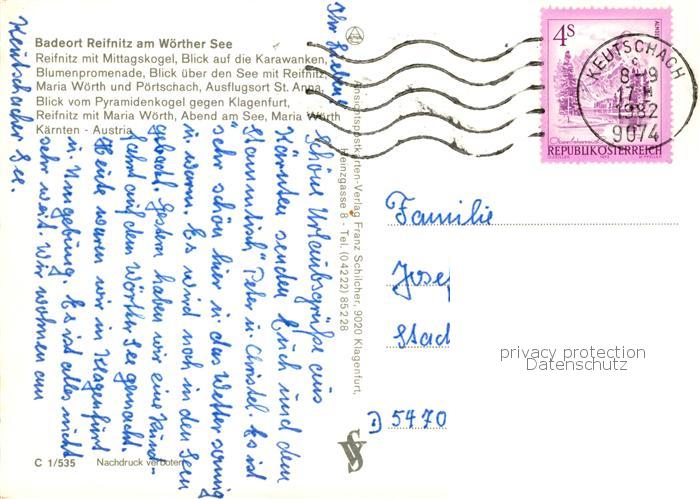 Badeort Reifnitz am Wörther See
Reifnitz mit Mittagskogel, Blick auf die Karawanken,
Blumenpromenade, Blick über den See mit Reifnitz,
Maria Wörth und Pörtschach, Ausflugsort St. Anna,
Blick vom Pyramidenkogel gegen Klagenfurt,
Reifnitz mit Maria Wörth, Abend am See, Maria Wörth
Kärnten - Austria
Schöne Urlaubsgrüße aus
Kärnten senden Euch und dem
Stammtisch Peter u. Christel. Es ist
sehr schön hier u. das Wetter sonnig
u. warm. Es wird noch in den Seen
gebadet. Gestern haben wir eine Rund-
fahrt auf dem Wörther See gemacht.
Heute waren wir in Klagenfurt
u. Umgebung. Es ist alles nicht
sehr weit. Wir wohnen am
Keutschacher See.
Ansichtspostkarten-Verlag Franz Schilcher, 9020 Klagenfurt,
Heinzgasse 8 - Tel. (04222) 85228
C 1/535
Nachdruck verboten
4S
REPUBLIK ÖSTERREICH
KEUTSCHACH
8-9
1982
9074
Familie
Josef
Stad
D 5470
privacy protection
Datenschutz